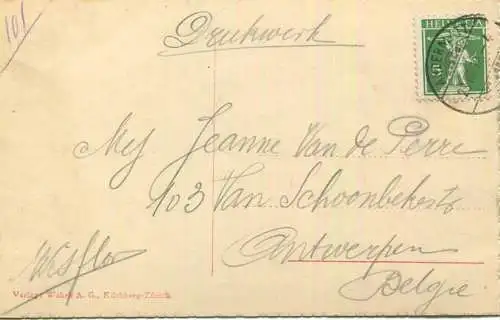 101
Drukwerk
HELVETIA
5
Mej Jeanne Van de Perre
103 Van Schoonbekestr
Antwerpen
Belgie
Verlag Wehrli A. G., Kilchberg-Zürich